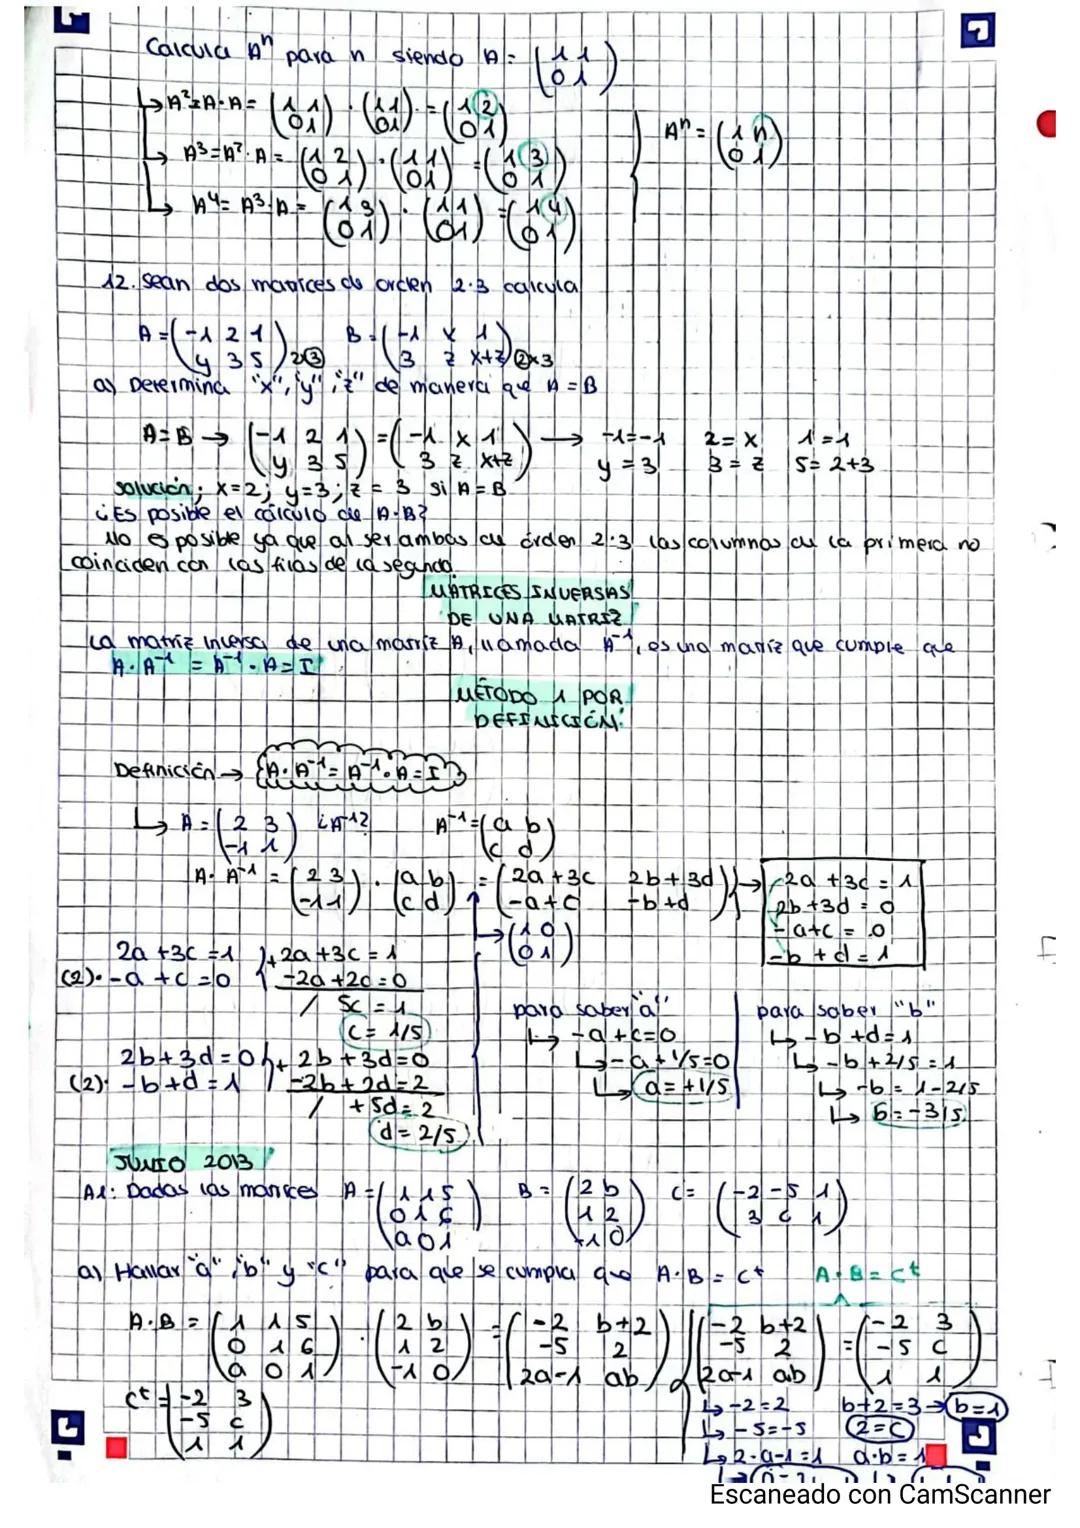 Calcula Aⁿ para n siendo A = (1 1 / 0 1)
↳ A² = A·A = (1 1 / 0 1) · (1 1 / 0 1) = (1 2 / 0 1)
↳ A³ = A²·A = (1 2 / 0 1) · (1 1 / 0 1) = (1 3 / 0 1)
Aⁿ = (1 n / 0 1)
↳ A⁴ = A³·A = (1 3 / 0 1) · (1 1 / 0 1) = (1 4 / 0 1)
12. Sean dos matrices de orden 2·3 calcula
A = (-1 2 1 / y 3 5) 2·3 B = (-1 x 1 / 3 z x+z) 2x3
a) Determina "x", "y", "z" de manera que A = B
A = B → (-1 2 1 / y 3 5) = (-1 x 1 / 3 z x+z) → -1=-1 2=x 1=1
y=3 3=z 5=2+3
Solución; x=2; y=3; z=3 si A=B
¿Es posible el cálculo de A·B?
No es posible ya que al ser ambas de órden 2·3 las columnas de la primera no
coinciden con las filas de la segunda.
MATRICES INVERSAS
DE UNA MATRIZ
La matriz inversa de una matriz A, llamada A⁻¹, es una matriz que cumple que
A·A⁻¹ = A⁻¹·A = I
MÉTODO 1 POR
DEFINICIÓN:
Definición → A·A⁻¹ = A⁻¹·A = I
↳ A = (2 3 / -1 1) ¿A⁻¹? A⁻¹ = (a b / c d)
A·A⁻¹ = (2 3 / -1 1) · (a b / c d) = (2a+3c 2b+3d / -a+c -b+d) → 2a+3c=1
2b+3d=0
-a+c=0
-b+d=1
→ (1 0 / 0 1)
2a+3c=1 + 2a+3c=1
(2)· -a+c=0 -2a+2c=0
/ 5c=1
c=1/5
2b+3d=0 + 2b+3d=0
(2)· -b+d=1 -2b+2d=2
/ +5d=2
d=2/5
para saber "a"
↳ -a+c=0
↳ -a+1/5=0
↳ a=+1/5
para saber "b"
↳ -b+d=1
↳ -b+2/5=1
↳ -b=1-2/5
↳ b=-3/5
JUNIO 2013
A1: Dadas las matrices A = (1 1 5 / 0 1 6 / a 0 1) B = (2 b / 1 2 / -1 0) C = (-2 -5 1 / 3 c 1)
a) Hallar "a", "b" y "c" para que se cumpla que A·B = Cᵗ A·B = Cᵗ
A·B = (1 1 5 / 0 1 6 / a 0 1) · (2 b / 1 2 / -1 0) = (-2 b+2 / -5 2 / 2a-1 ab) (-2 b+2 / -5 2 / 2a-1 ab) = (-2 3 / -5 c / 1 1)
Cᵗ = (-2 3 / -5 c / 1 1)
↳ -2=2 b+2=3 → b=1
↳ -5=-5 2=c
↳ 2·a-1=1 a·b=1
Escaneado con CamScanner